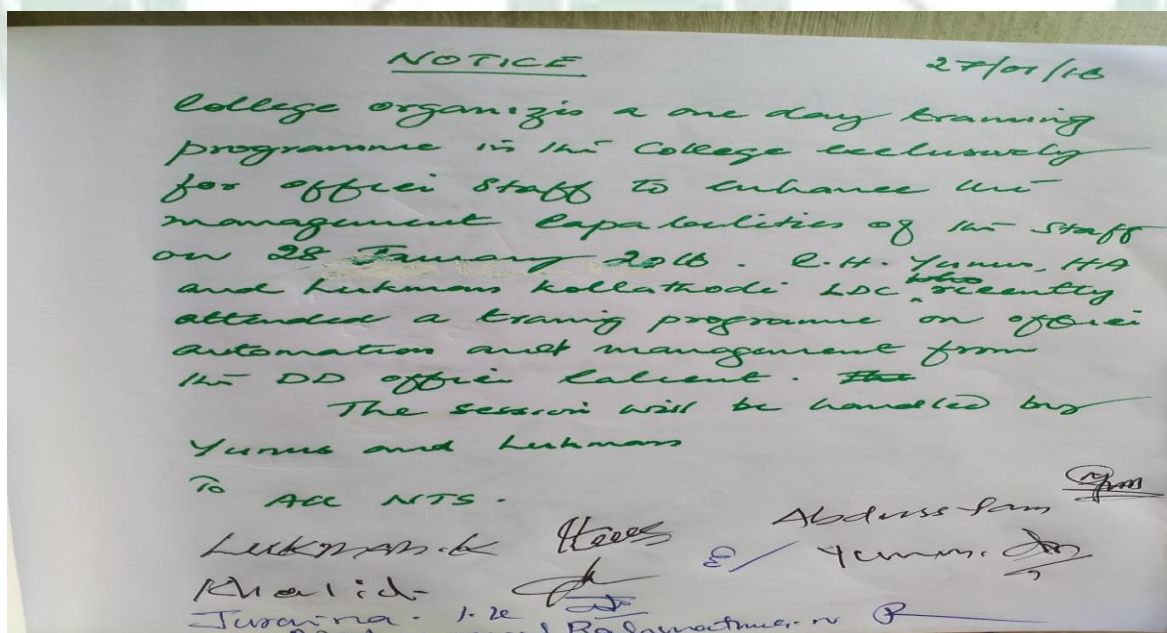 NOTICE 27/01/16
College organizis a one day training
programme in the College exclusively
for office staff to enhance the
management capabilities of the staff
on 28 January 2016. C.H. Yunus, HA
and Lukmans Kollathodi LDC who recently
attended a traning programme on office
automation and management from
the DD office Calicut.
The session will be handled by
Yunus and Lukmans
To
All NTS.
Lukman.K Abdussalam
Khalid Yunus.
Juraina.